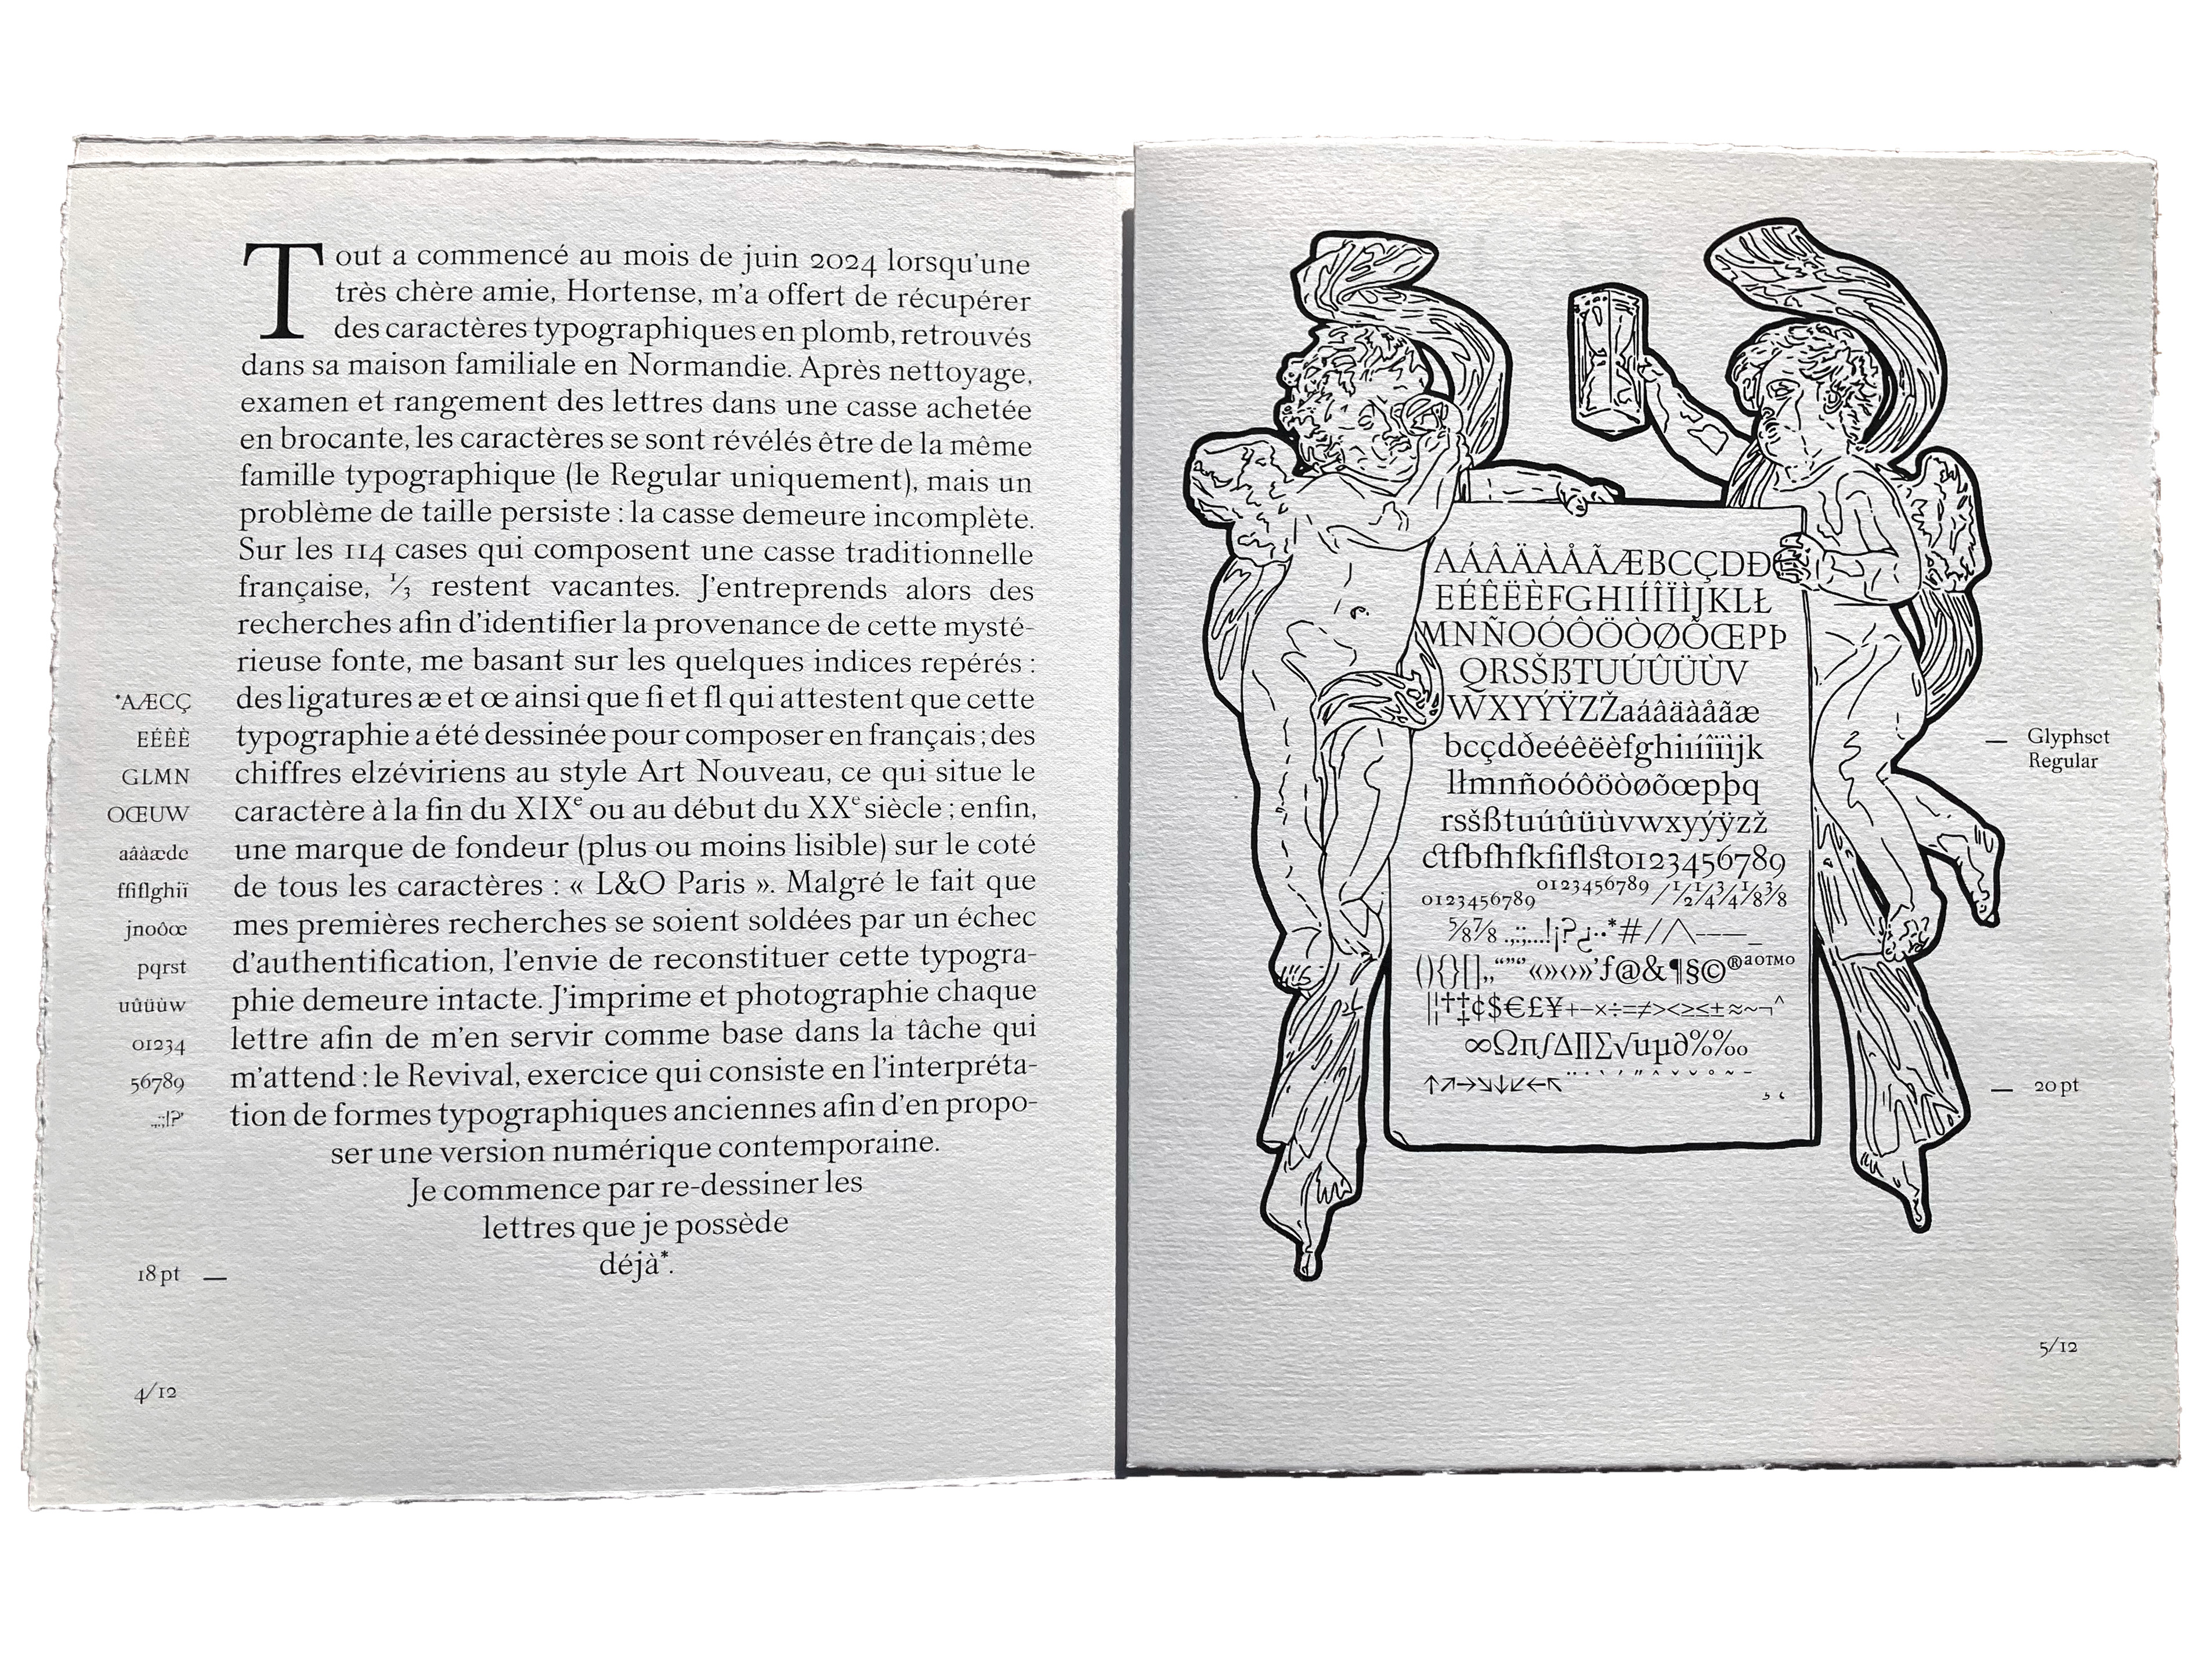 Tout a commencé au mois de juin 2024 lorsqu'une
très chère amie, Hortense, m'a offert de récupérer
des caractères typographiques en plomb, retrouvés
dans sa maison familiale en Normandie. Après nettoyage,
examen et rangement des lettres dans une casse achetée
en brocante, les caractères se sont révélés être de la même
famille typographique (le Regular uniquement), mais un
problème de taille persiste : la casse demeure incomplète.
Sur les 114 cases qui composent une casse traditionnelle
française, ⅓ restent vacantes. J'entreprends alors des
recherches afin d'identifier la provenance de cette mysté-
rieuse fonte, me basant sur les quelques indices repérés :
des ligatures æ et œ ainsi que fi et fl qui attestent que cette
typographie a été dessinée pour composer en français ; des
chiffres elzéviriens au style Art Nouveau, ce qui situe le
caractère à la fin du XIXᵉ ou au début du XXᵉ siècle ; enfin,
une marque de fondeur (plus ou moins lisible) sur le coté
de tous les caractères : « L&O Paris ». Malgré le fait que
mes premières recherches se soient soldées par un échec
d'authentification, l'envie de reconstituer cette typogra-
phie demeure intacte. J'imprime et photographie chaque
lettre afin de m'en servir comme base dans la tâche qui
m'attend : le Revival, exercice qui consiste en l'interpréta-
tion de formes typographiques anciennes afin d'en propo-
ser une version numérique contemporaine.
Je commence par re-dessiner les
lettres que je possède
déjà*.
*AÆCÇ
EÉÊÈ
GLMN
OŒUW
aâàæde
ffiflghiï
jnoôœ
pqrst
uûüùw
01234
56789
.,:;!?'
18 pt —
4/12
AÁÂÄÀÅÃÆBCÇDÐ
EÉÊËÈFGHIÍÎÏÌJKLŁ
MNÑOÓÔÖÒØÕŒPÞ
QRSŠßTUÚÛÜÙV
WXYÝŸZŽaáâäàåãæ
bcçdðeéêëèfghiıíîïìjk
lłmnñoóôöòøõœpþq
rsšßtuúûüùvwxyýÿzž
ctfbfhfkfiflsto123456789
0123456789 0123456789 /½¼¾⅛⅜
⅝⅞ .,:;…!¡?¿·•*#/
(){}[]‚„“”‘’«»‹›"'ƒ@&¶§©®ªºTMO
|¦†‡¢$€£¥+−×÷=≠><≥≤±≈~¬^
∞Ωπ∫∆∏∑√uµ∂%‰
↑↗→↘↓↙←↖
— Glyphset
Regular
— 20 pt
5/12